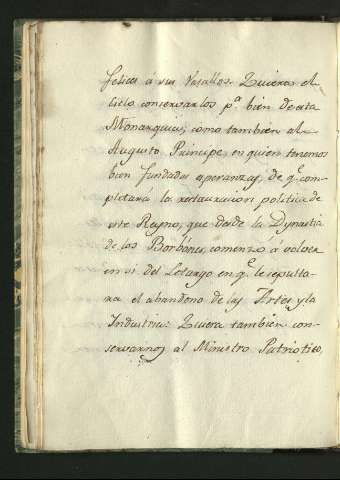 felices a sus Vasallos. Quiera el
Cielo conservarlos pª. bien de esta
Monarquia, como tambien al
Augusto Principe, en quien tenemos
bien fundadas esperanzas, de qᵉ. com-
pletará la restauracion politica de
este Reyno, que desde la Dynastia
de los Borbónes, comenzó á volver
en sí del Letargo en qᵉ. le sepulta-
ra el abandono de las Artes, y la
Industria: Quiera tambien con-
servarnos al Ministro Patriotico,